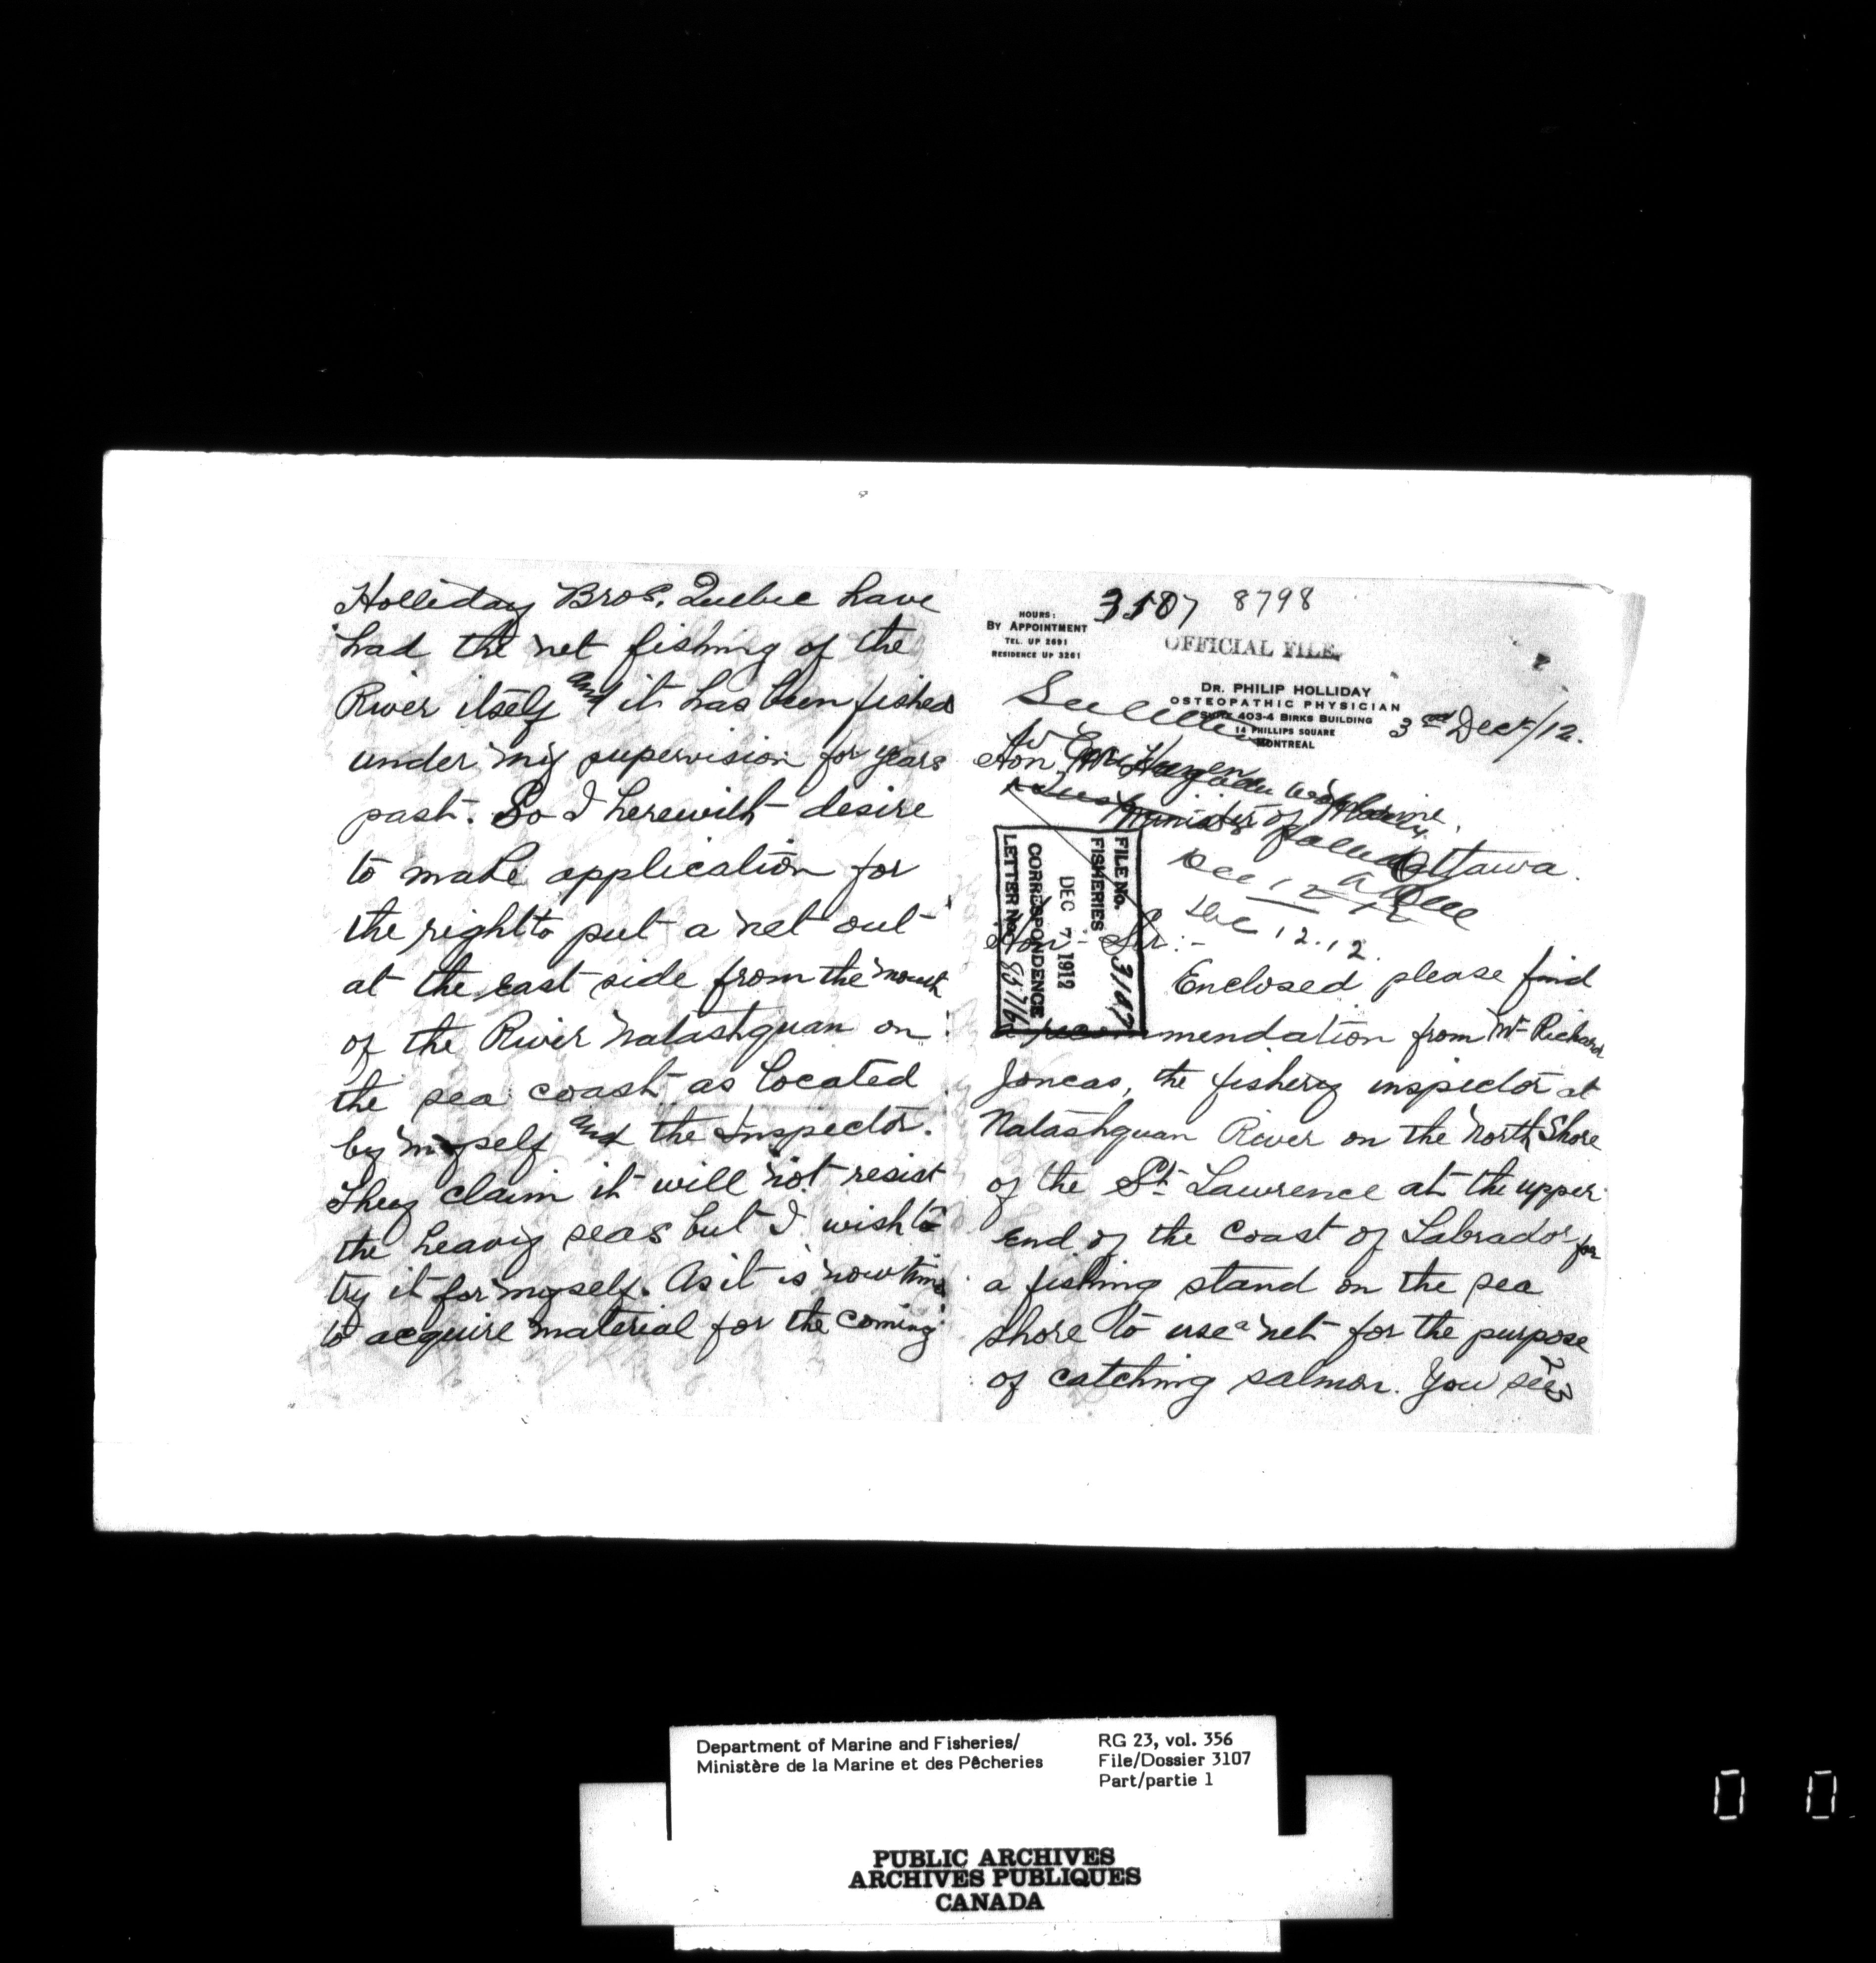 3107 8798
HOURS:
BY APPOINTMENT
TEL. UP 2691
RESIDENCE UP 3261
OFFICIAL FILE
DR. PHILIP HOLLIDAY
OSTEOPATHIC PHYSICIAN
SUITE 403-4 BIRKS BUILDING
14 PHILLIPS SQUARE
MONTREAL
3rd Dec/12.
Hon. Hazen
Minister of Marine,
Ottawa.
Dec 12.12
FILE No. 3107
FISHERIES
DEC 7 1912
CORRESPONDENCE
LETTER No.
Hon. Sir:-
Enclosed please find
a recommendation from Mr Richard
Joncas, the fishery inspector at
Natashquan River on the North Shore
of the St. Lawrence at the upper
end of the Coast of Labrador for
a fishing stand on the sea
shore to use a net for the purpose
of catching salmon. You see
Holliday Bros. Quebec have
had the net fishing of the
River itself and it has been fished
under my supervision for years
past. So I herewith desire
to make application for
the right to put a net out
at the east side from the mouth
of the River Natashquan on
the sea coast as located
by myself and the Inspector.
They claim it will not resist
the heavy seas but I wish to
try it for myself. As it is now time
to acquire material for the coming
Department of Marine and Fisheries/
Ministère de la Marine et des Pêcheries
RG 23, vol. 356
File/Dossier 3107
Part/partie 1
PUBLIC ARCHIVES
ARCHIVES PUBLIQUES
CANADA
0 0